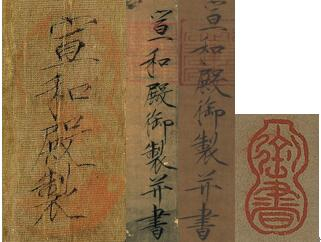 宣和殿製
宣和殿御製并書
宣和殿御製并書
御書